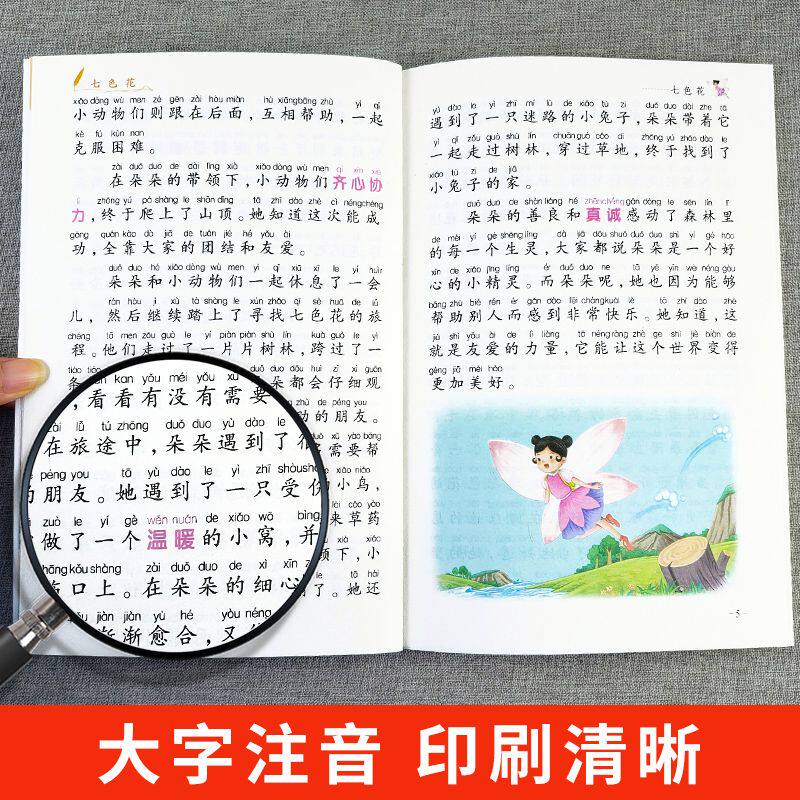 七色花
xiǎo dòng wù men zé gēn zài hòu miàn hù xiāng bāng zhù yì qǐ
小动物们则跟在后面，互相帮助，一起
kè fú kùn nan
克服困难。
zài duǒ duo de dài lǐng xià xiǎo dòng wù men qí xīn xié
在朵朵的带领下，小动物们齐心协
lì zhōng yú pá shàng le shān dǐng tā zhī dào zhè cì néng chéng
力，终于爬上了山顶。她知道这次能成
gōng quán kào dà jiā de tuán jié hé yǒu ài
功，全靠大家的团结和友爱。
duǒ duo hé xiǎo dòng wù men yì qǐ xiū xi le yí huìr
朵朵和小动物们一起休息了一会
rán hòu jì xù tà shàng le xún zhǎo qī sè huā de lǚ
儿，然后继续踏上了寻找七色花的旅
chéng tā men zǒu guò le yí piàn piàn shù lín kuà guò le yì
程。他们走过了一片片树林，跨过了一
tiáo tiáo duǒ duo dōu huì zǐ xì guān
条 朵都会仔细观
kàn kan yǒu méi yǒu xū
，看看有没有需要
de péng you
动的朋友。
zài lǚ tú zhōng duǒ duo yù dào le
在旅途中，朵朵遇到了
xū yào bāng
需要帮
péng you tā yù dào le yì zhī shòu shāng xiǎo niǎo
的朋友。她遇到了一只受伤 小鸟，
zuò le yí gè wēn nuǎn de xiǎo wō bìng
做了一个温暖的小窝，并
lái cǎo yào
来草药
shāng kǒu shàng zài duǒ duo de xì xīn
伤口上。在朵朵的细心
下，小
le tā hái
了。她还
jiàn jiàn yù hé yòu néng
渐渐愈合，又
七色花
yù dào le yì zhī mí lù de xiǎo tù zi duǒ duo dài zhe tā
遇到了一只迷路的小兔子，朵朵带着它
yì qǐ zǒu guò shù lín chuān guò cǎo dì zhōng yú zhǎo dào le
一起走过树林，穿过草地，终于找到了
xiǎo tù zi de jiā
小兔子的家。
duǒ duo de shàn liáng hé zhēn chéng gǎn dòng le sēn lín lǐ
朵朵的善良和真诚感动了森林里
de měi yí gè shēng líng dà jiā dōu shuō duǒ duo shì yí gè hǎo
的每一个生灵，大家都说朵朵是一个好
xīn de xiǎo jīng líng ér duǒ duo ne tā yě yīn wèi néng gòu
心的小精灵。而朵朵呢，她也因为能够
bāng zhù bié rén ér gǎn dào fēi cháng kuài lè tā zhī dào zhè
帮助别人而感到非常快乐。她知道，这
jiù shì yǒu ài de lì liàng tā néng ràng zhè ge shì jiè biàn de
就是友爱的力量，它能让这个世界变得
gèng jiā měi hǎo
更加美好。
-5-
大字注音 印刷清晰